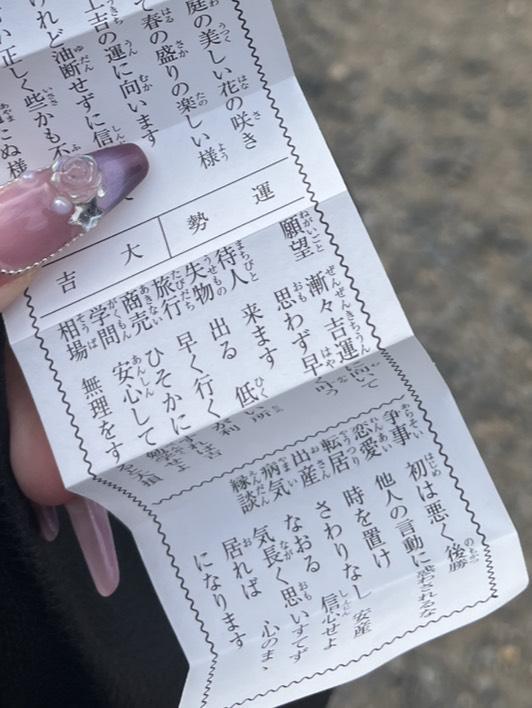 庭の美しい花の咲き
て春の盛りの楽しい様
上吉の運に向います
けれど油断せずに信
い正しく些かも不
にぬ様
運勢
大吉
願望 漸々吉運
思わず早
待人 来ます
失物 出る 低い所
旅行 早く行くが利
商売 ひそかに
学問 安心して
相場 無理をす
争事 初は悪く後勝
恋愛 他人の言動に惑わされるな
転居 時を置け
出産 さわりなし 安産
病気 なおる 信心せよ
縁談 気長く思いすてず
居れば 心のまゝ
になります